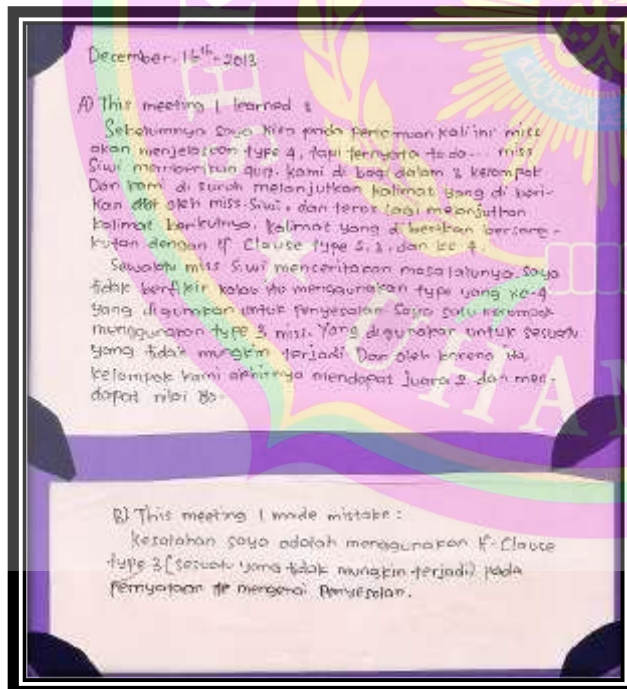 December, 16th - 2013
A) This meeting I learned :
Sebelumnya saya kira pada pertemuan kali ini miss
akan menjelaskan type 4, tapi ternyata tada... miss
Siwi memberikan quiz. kami di bagi dalam 3 kelompok
Dan kami di suruh melanjutkan kalimat yang di beri-
kan oleh miss Siwi, dan terus lagi melanjutkan
kalimat berikutnya. kalimat yang di berikan bersang-
kutan dengan If Clause type 2, 3, dan ke 4.
Sewaktu miss Siwi menceritakan masa lalunya. saya
tidak berfikir kalau itu menggunakan type yang ke-4
yang digunakan untuk penyesalan Saya satu kelompok
menggunakan type 3 miss. Yang digunakan untuk sesuatu
yang tidak mungkin terjadi Dan oleh karena itu,
kelompok kami akhirnya mendapat juara 2 dan men-
dapat nilai 80.
B) This meeting I made mistake :
kesalahan saya adalah menggunakan If-Clause
type 3 (sesuatu yang tidak mungkin terjadi) pada
pernyataan mengenai penyesalan.